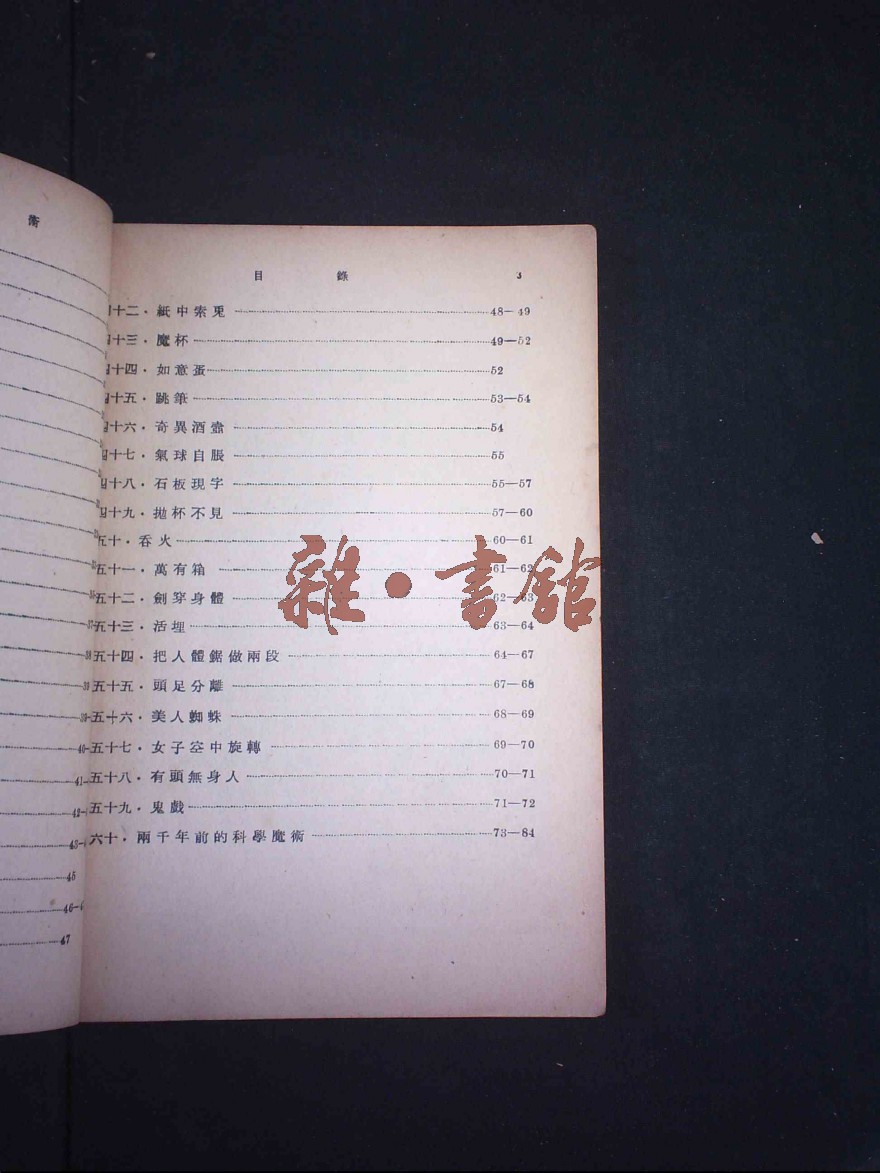 術
目錄 3
四十二・紙中索兎 48—49
四十三・魔杯 49—52
四十四・如意蛋 52
四十五・跳筆 53—54
四十六・奇異酒壺 54
四十七・氣球自脹 55
四十八・石板現字 55—57
四十九・拋杯不見 57—60
五十・吞火 60—61
五十一・萬有箱 61—62
五十二・劍穿身體 62—63
五十三・活埋 63—64
五十四・把人體鋸做兩段 64—67
五十五・頭足分離 67—68
五十六・美人蜘蛛 68—69
五十七・女子空中旋轉 69—70
五十八・有頭無身人 70—71
五十九・鬼戲 71—72
六十・兩千年前的科學魔術 73—84
雜・書館
45
47